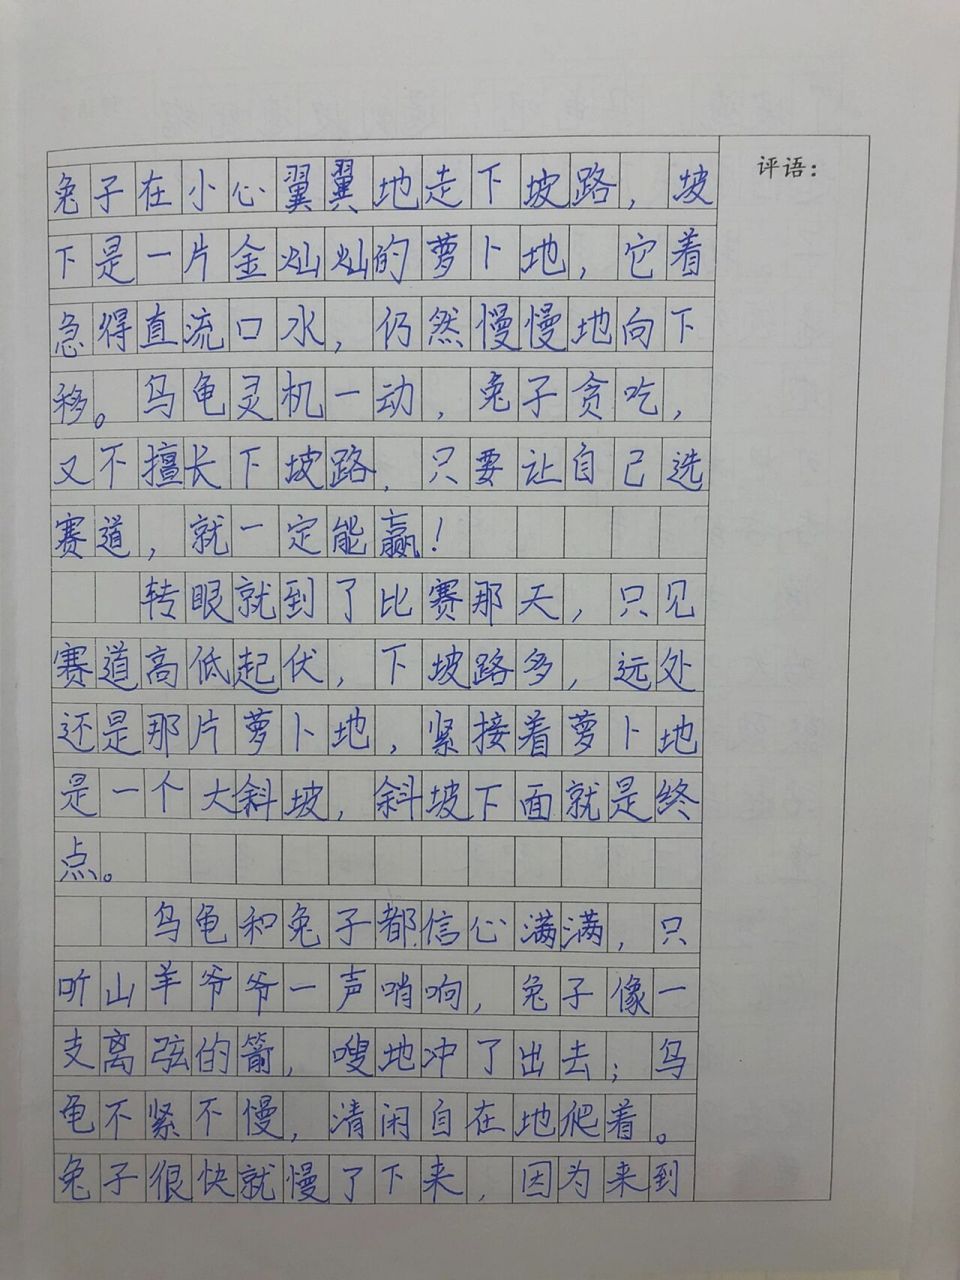 评语：
兔子在小心翼翼地走下坡路，坡
下是一片金灿灿的萝卜地，它着
急得直流口水，仍然慢慢地向下
移。乌龟灵机一动，兔子贪吃，
又不擅长下坡路，只要让自己选
赛道，就一定能赢！
转眼就到了比赛那天，只见
赛道高低起伏，下坡路多，远处
还是那片萝卜地，紧接着萝卜地
是一个大斜坡，斜坡下面就是终
点。
乌龟和兔子都信心满满，只
听山羊爷爷一声哨响，兔子像一
支离弦的箭，嗖地冲了出去；乌
龟不紧不慢，清闲自在地爬着。
兔子很快就慢了下来，因为来到